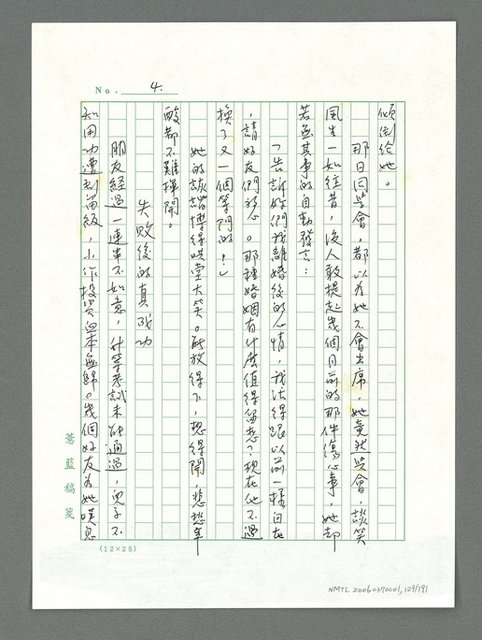 No. 4.
傾倒給她。
那日同學會，都以為她不會出席，她竟然與會，談笑
風生一如往昔，沒人敢提起幾個月前的那件傷心事，她卻
若無其事的自動發言：
「告訴妳們我離婚後的心情，我活得跟以前一樣自在
，請好友們放心。那種婚姻有什麼值得留戀？現在他不過
換了又一個等門的！」
她的詼諧博得哄堂大笑。能放得下，想得開，悲愁辛
酸都不難撐開。
失敗後的真成功
朋友經過一連串不如意，升等考試未能通過，兒子不
知用功遭到留級，小作投資血本無歸。幾個好友為她嘆息
薏藍稿箋
(12×25)
NMTL 20060390001, 129/191